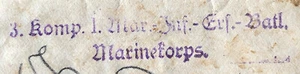 3. Komp. I. Mar.-Inf.-Ers.-Batl.
Marinekorps.